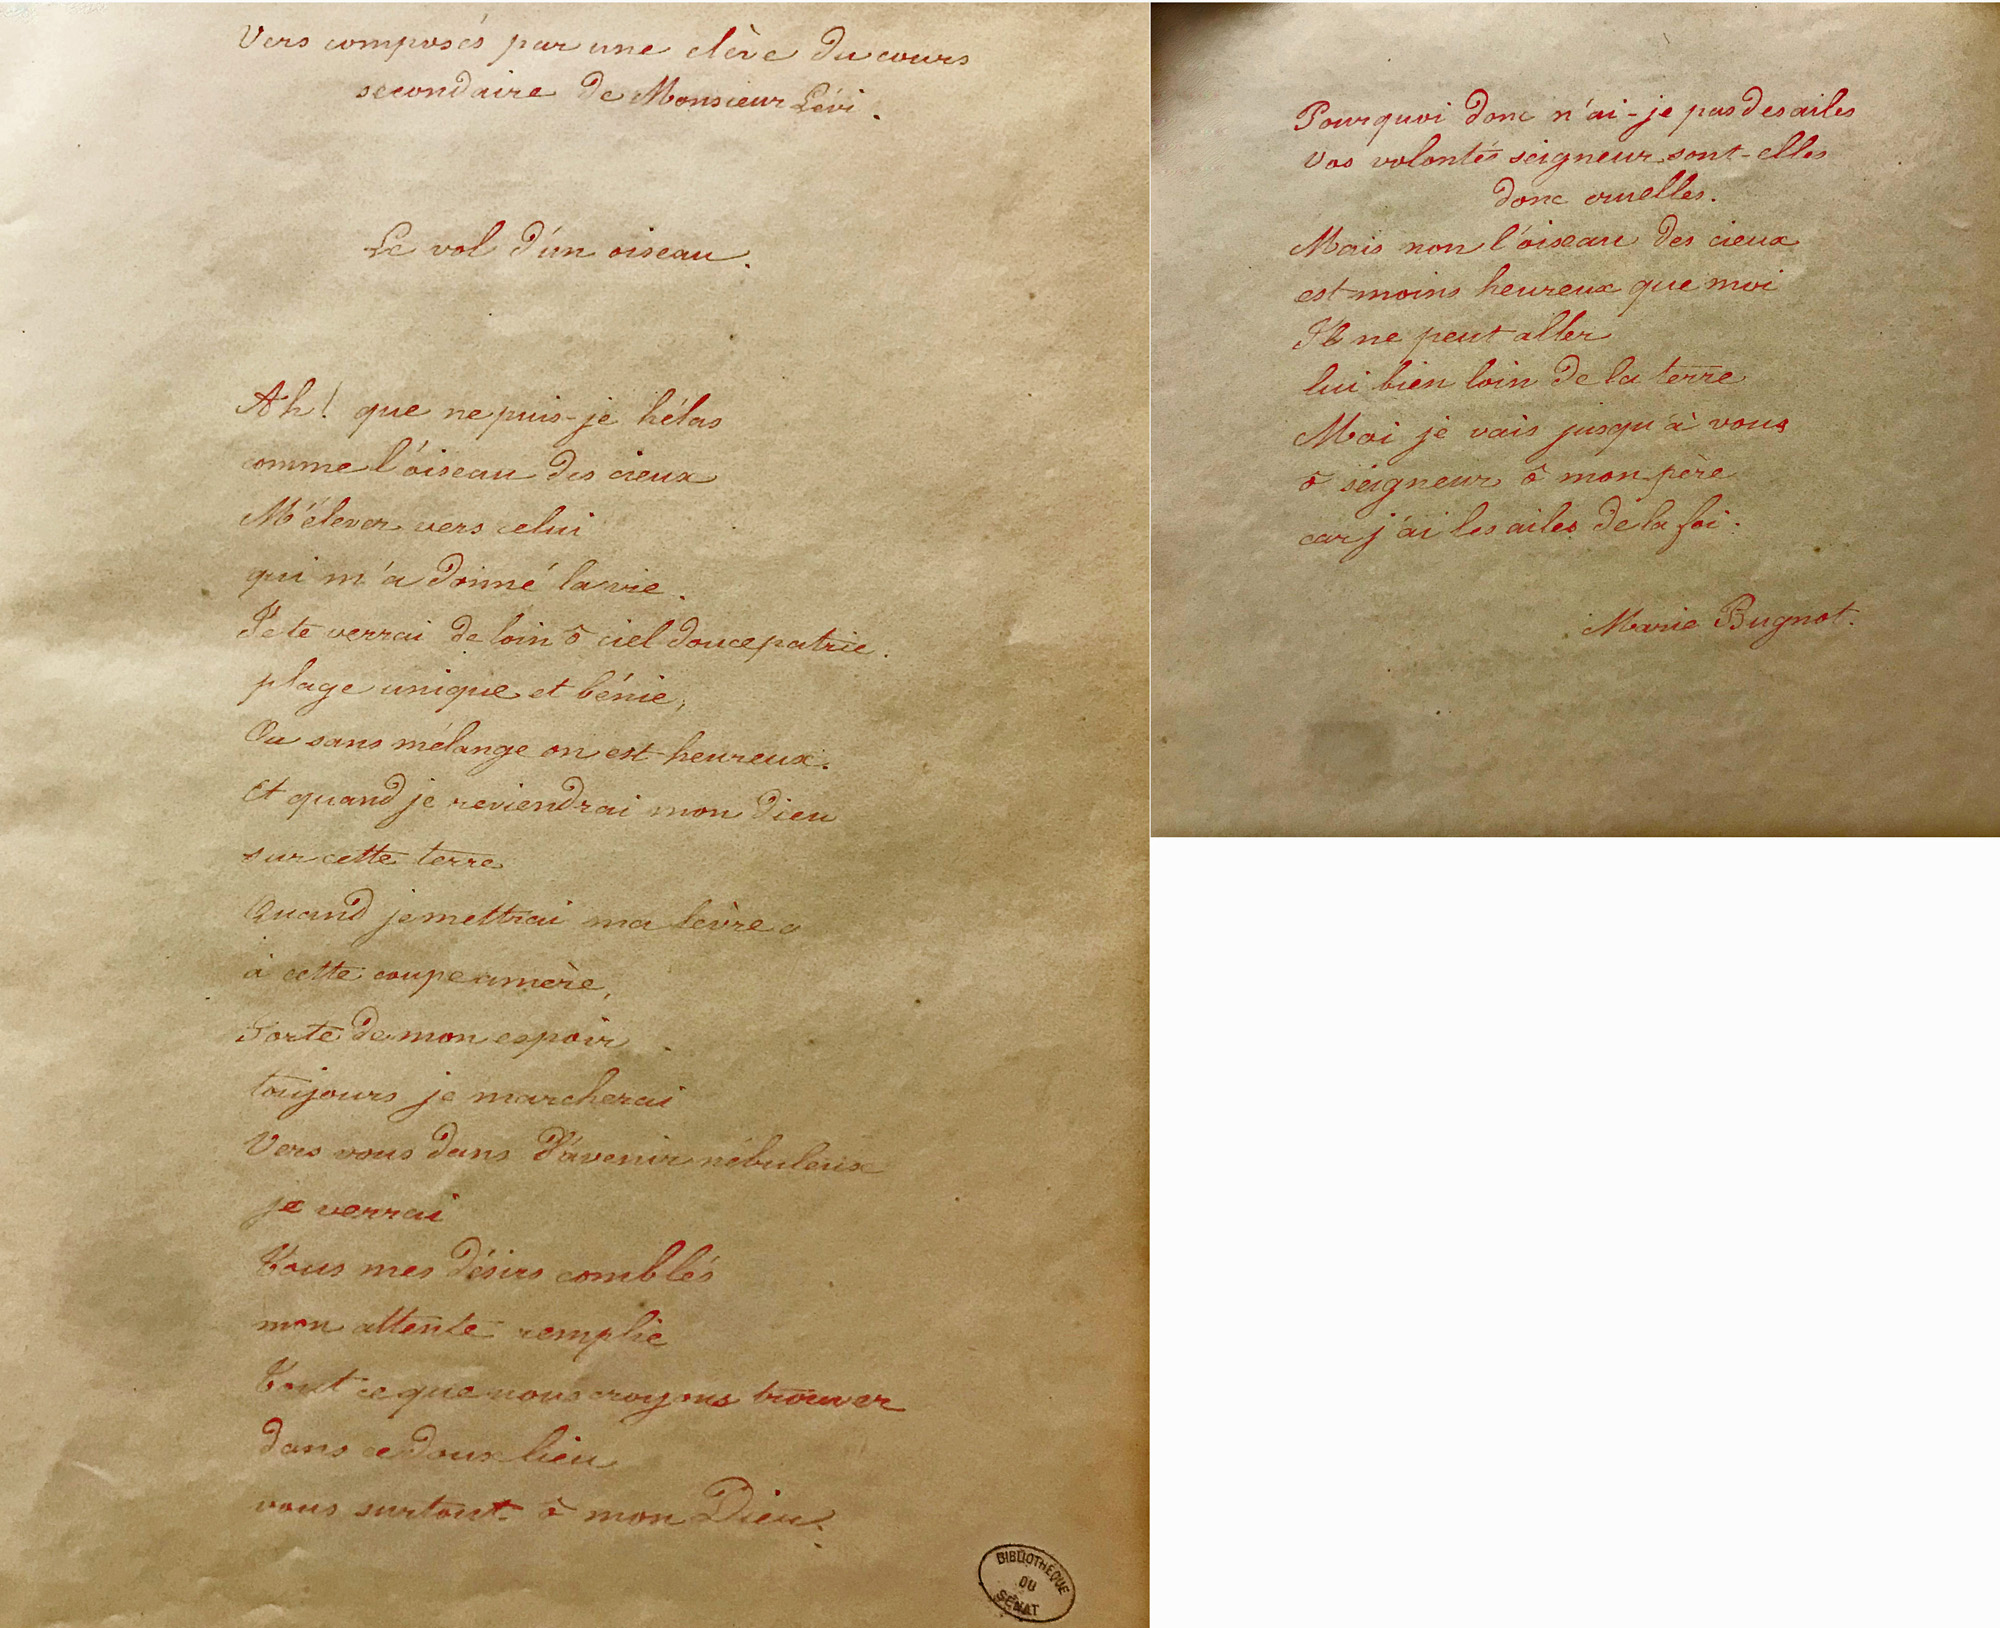 Vers composés par une elève du cours
secondaire de Monsieur Lévi.
Le vol d'un oiseau.
Ah! que ne puis-je hélas
comme l'oiseau des cieux
M'élever vers celui
qui m'a donné la vie.
Je te verrai de loin ô ciel douce patrie.
plage unique et bénie,
Ou sans mélange on est heureux.
Et quand je reviendrai mon Dieu
sur cette terre
Quand je mettrai ma lèvre a
à cette coupe amère,
Forte de mon espoir
toujours je marcherai
Vers vous dans l'avenir nébuleux
je verrai
Tous mes désirs comblés
mon attente remplie
Tout ce que nous croyons trouver
dans ce doux lieu
vous surtout ô mon Dieu.
BIBLIOTHEQUE
DU
SÉNAT
Pourquoi donc n'ai-je pas des ailes
Vos volontés seigneur sont-elles
donc cruelles.
Mais non l'oiseau des cieux
est moins heureux que moi
Il ne peut aller
lui bien loin de la terre
Moi je vais jusqu'à vous
ô seigneur ô mon père
car j'ai les ailes de la foi.
Marie Bugnot.